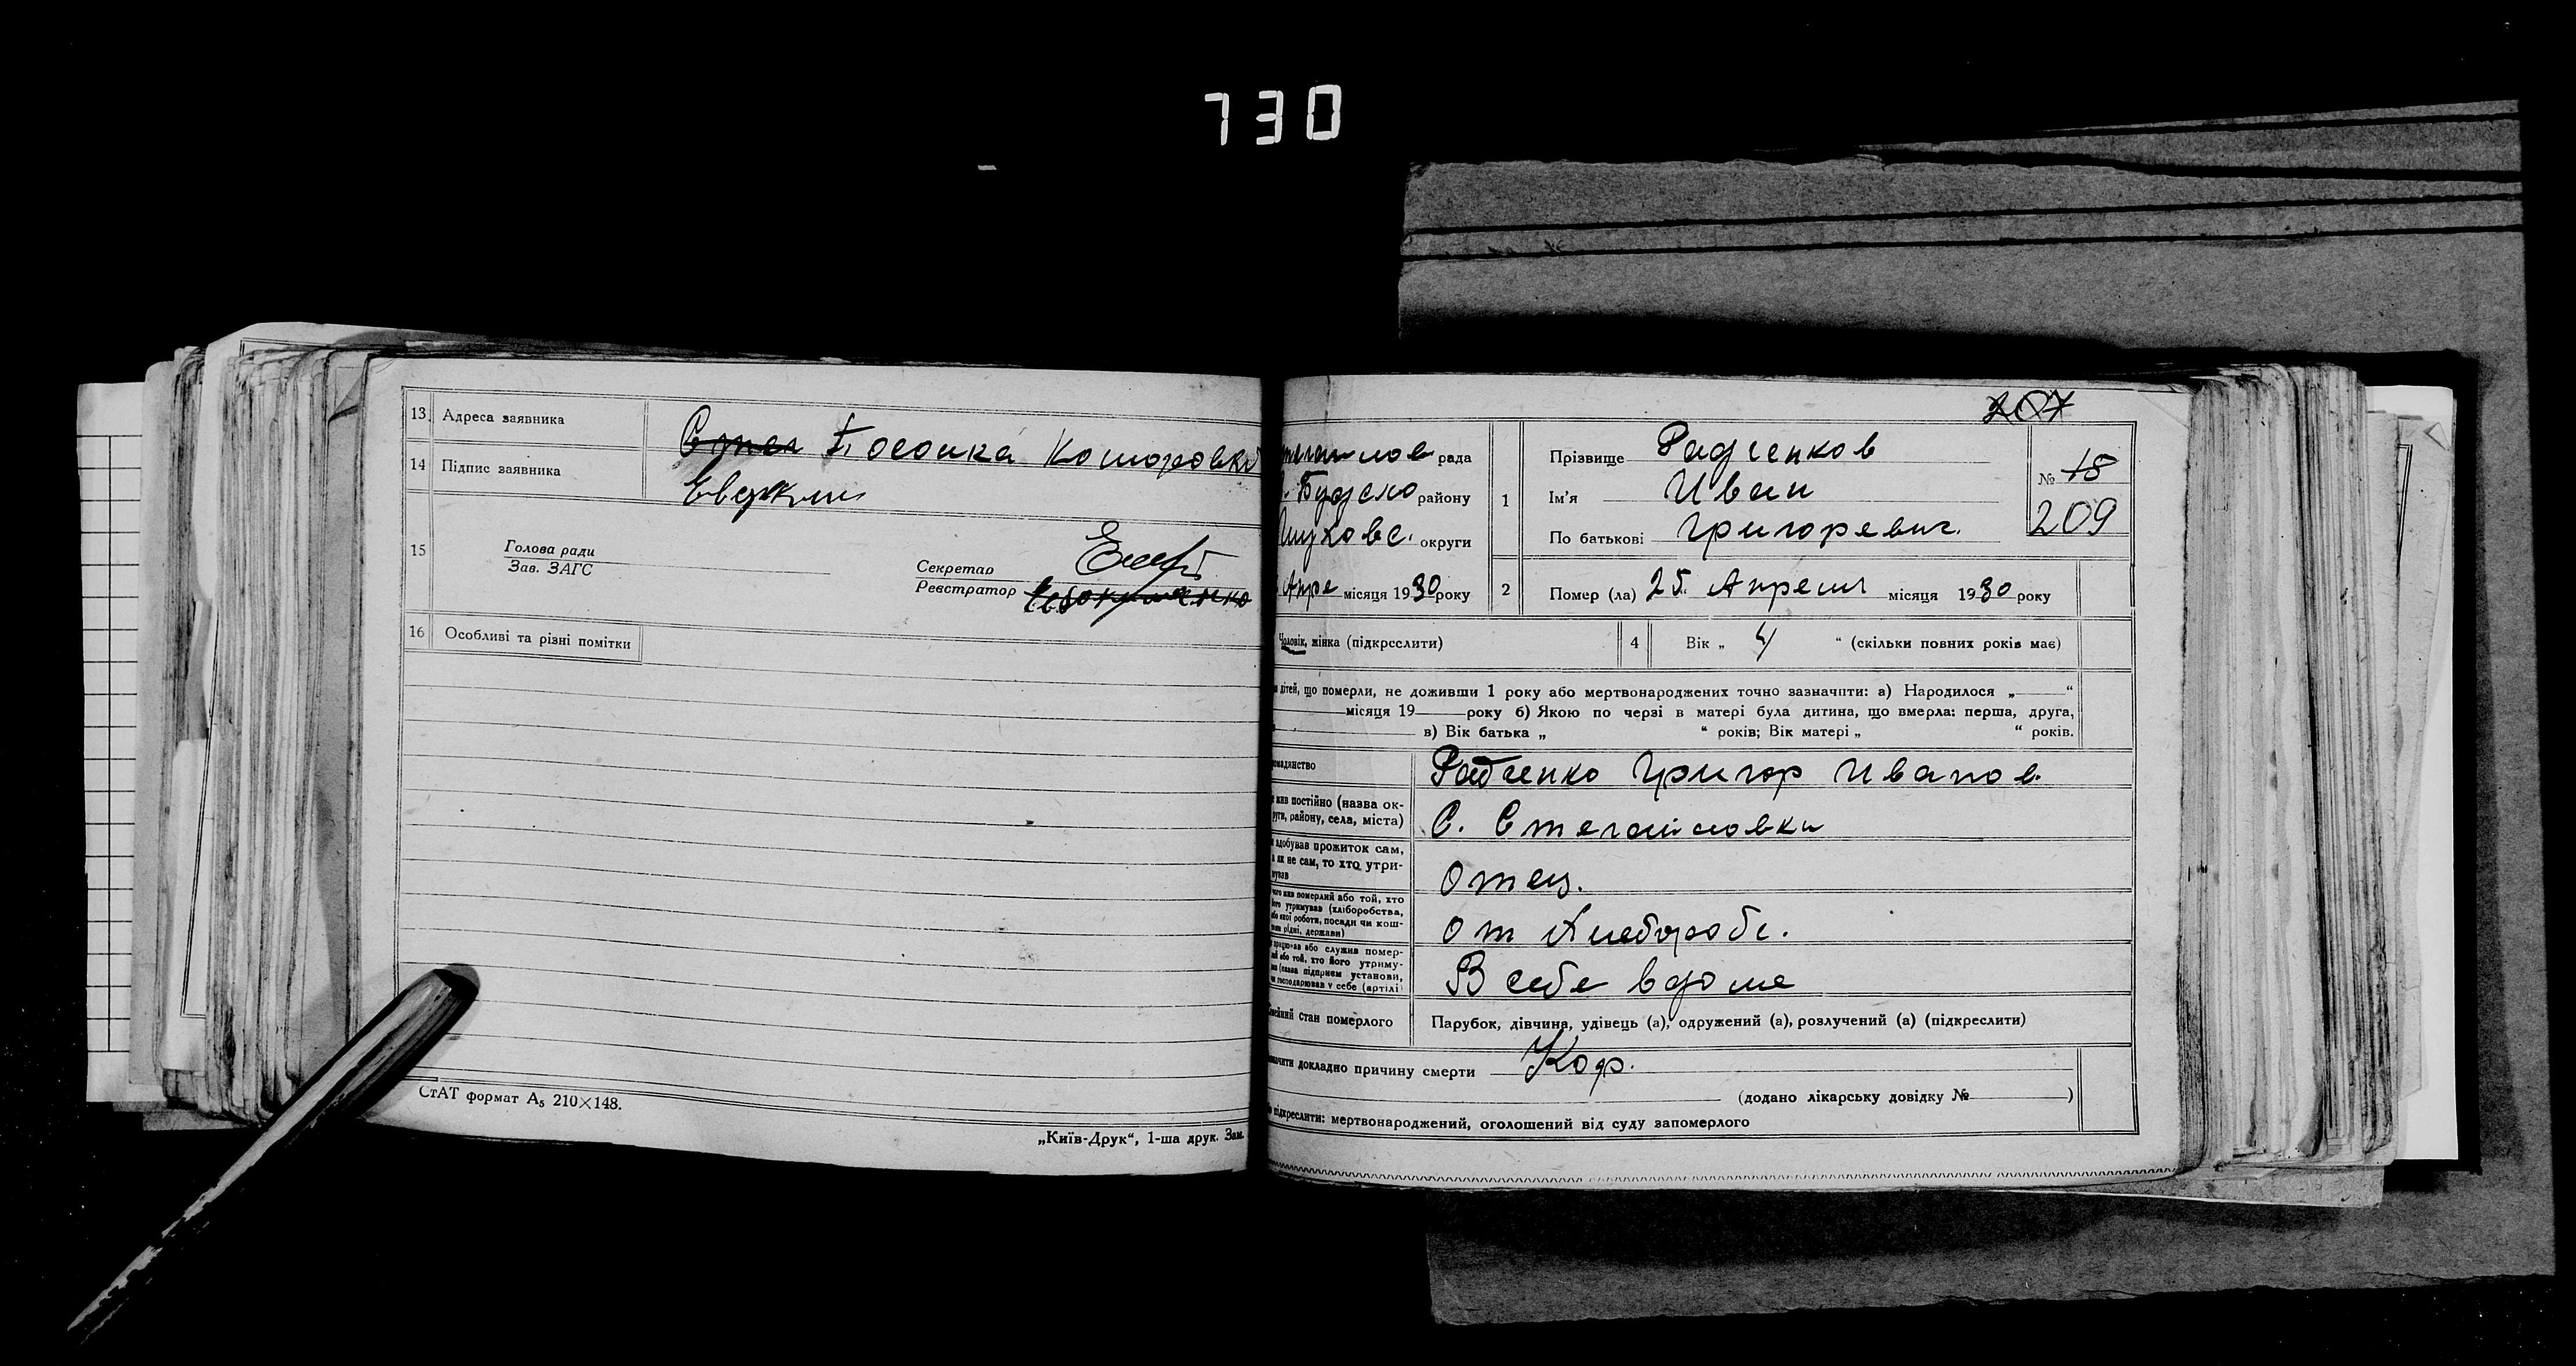 730
13. Адреса заявника
Посоика Коморовка
14 Підпис заявника
Евдоким
15
Голова ради
Зав. ЗАГС
Секретар
Реєстратор
16 Особливі та різні помітки
СтАТ формат А₅ 210×148.
„Київ-Друк“, 1-ша друк. Зам.
207
рада
району
округи
Апре місяця 1930 року
1
Прізвище Радченков
Ім'я Иван
По батькові Григоревич.
№ 18
209
2 Помер (ла) 25 Апреля місяця 1930 року
Чоловік, жінка (підкреслити)
4 Вік „ 4 “ (скільки повних років має)
дітей, що померли, не доживши 1 року або мертвонароджених точно зазначити: а) Народилося „ “
місяця 19 року б) Якою по черзі в матері була дитина, що вмерла: перша, друга,
в) Вік батька „ “ років; Вік матері „ “ років.
Радченко Григор Иванов.
жив постійно (назва ок-
руги, району, села, міста)
С.
здобував прожиток сам,
а як не сам, то хто утри-
мував
Отец.
чого жив померлий або той, хто
його утримував (хліборобства,
або якої роботи, посади чи кош-
рідні, держави)
от Хлебороб.
або служив помер-
або той, хто його утриму-
(назва підприєм установи,
господарював у себе (артілі
В себе вдоме
стан померлого
Парубок, дівчина, удівець (а), одружений (а), розлучений (а) (підкреслити)
докладно причину смерти Кор.
(додано лікарську довідку № )
підкреслити: мертвонароджений, оголошений від суду запомерлого